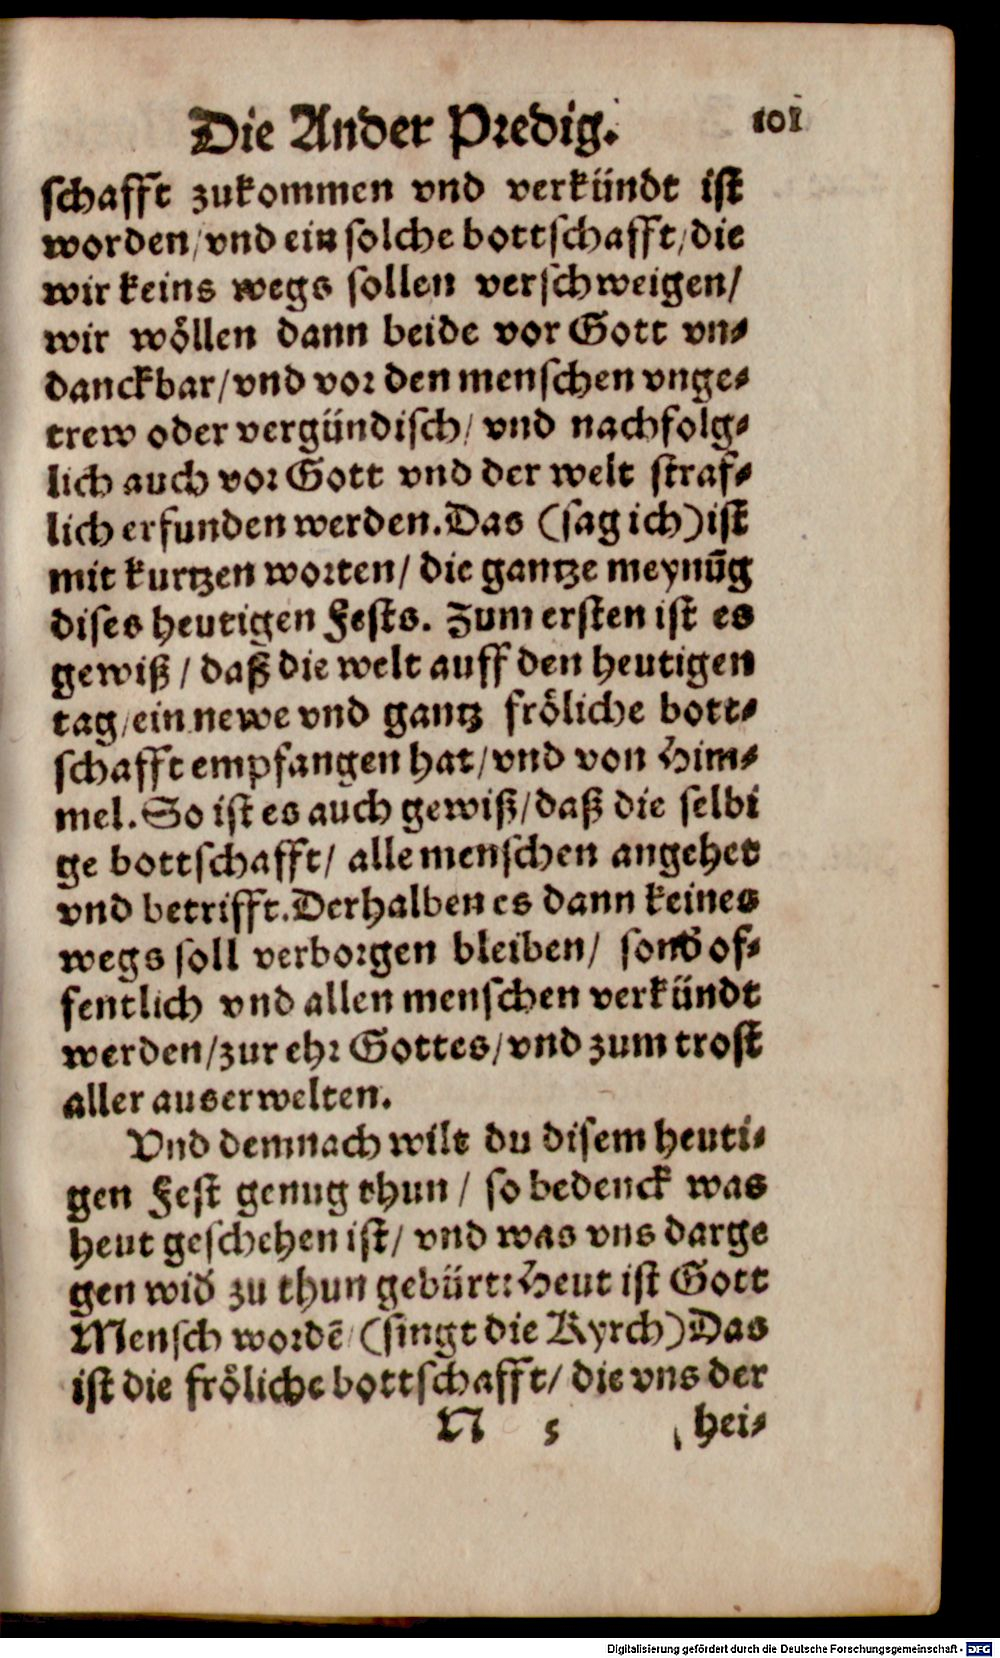 Die Ander Predig. 101
schafft zukommen vnd verkündt ist
worden/vnd ein solche bottschafft/die
wir keins wegs sollen verschweigen/
wir wöllen dann beide vor Gott vn-
danckbar/vnd vor den menschen vnge-
trew oder vergündisch/ vnd nachfolg-
lich auch vor Gott vnd der welt straf-
lich erfunden werden. Das (sag ich) ist
mit kurtzen worten/ die gantze meynūg
dises heutigen Fests. Zum ersten ist es
gewiß/ daß die welt auff den heutigen
tag/ein newe vnd gantz fröliche bott-
schafft empfangen hat/vnd von Him-
mel. So ist es auch gewiß/daß die selbi
ge bottschafft/ alle menschen angehet
vnd betrifft. Derhalben es dann keines
wegs soll verborgen bleiben/ sond̄ of-
fentlich vnd allen menschen verkündt
werden/zur ehr Gottes/vnd zum trost
aller auserwelten.
Vnd demnach wilt du disem heuti-
gen Fest genug thun/ so bedenck was
heut geschehen ist/ vnd was vns darge
gen wid̄ zu thun gebürt: Heut ist Gott
Mensch wordē (singt die Kyrch) Das
ist die fröliche bottschafft/ die vns der
N 5 hei-
Digitalisierung gefördert durch die Deutsche Forschungsgemeinschaft - DFG